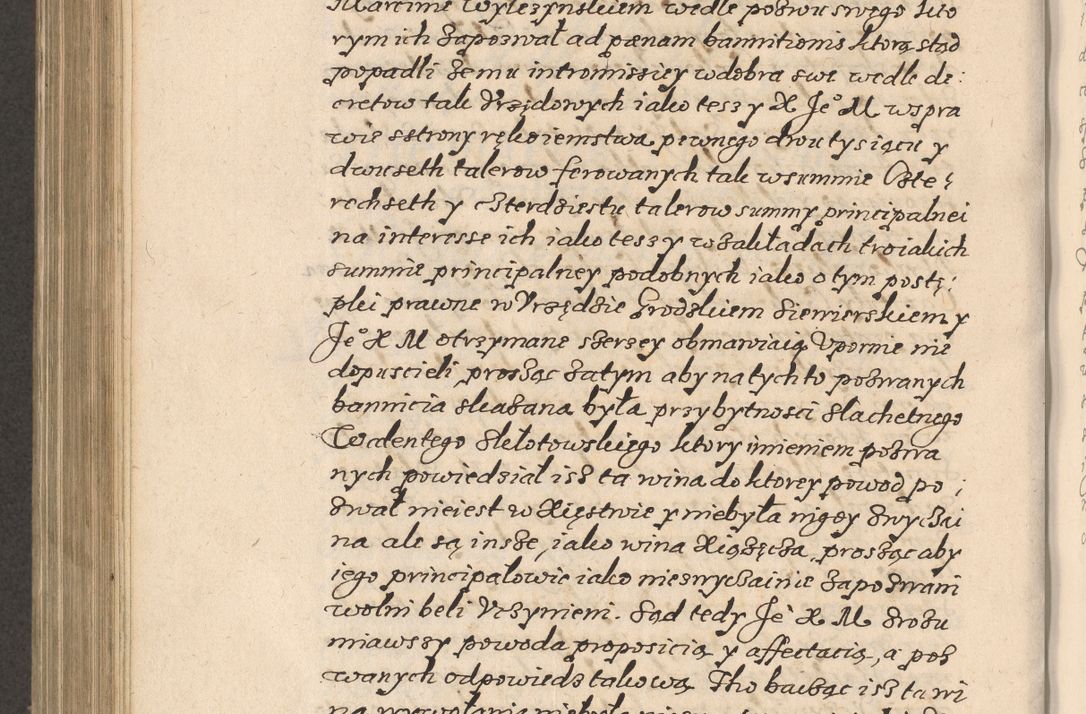 Marcinie Wylezynskiem wedle pozwu swego kto
rym ich zapozwał ad pænam bannitionis ktorą stąd
popadli ze mu intromissiey w dobra swe wedle de:
cretow tak Vrzędowych iako tesz y X Je° M w spra
wie z strony rękoiemstwa pewnego dwu tysiącu y
dwuseth talerow ferowanych tak w summie Czte:
rechseth y czterdziestu talerow summy principalnei
na interesse ich iako tesz y w zakładach troiakich
summie principalney podobnych iako o tym postę:
pki prawne w Vrzędzie Grodzkiem Siewierskiem y
Je° X M otrzymane szerzey obmawiaią Vpornie nie
dopuscieli prosząc zatym aby na tych to pozwanych
bannicia skazana była przy bytnosci slachetnego
Walentego Skłotowskiego ktory imieniem pozwa
nych powiedział isz ta wina do ktorey powod po:
zwał nieiest w Xięstwie y niebyła nigdy zwyczai
na ale są insze, iako wina Xiążęcza, prosząc aby
iego principałowie iako niezwyczainie zapozwani
wolni beli Vczynieni. Sąd tedy Je° X M zrozu
miawszy powoda proposicią y affectacią, a poz
wanych odpowiedz takową Tho bacząc isz ta wi
na wywołania niebyła